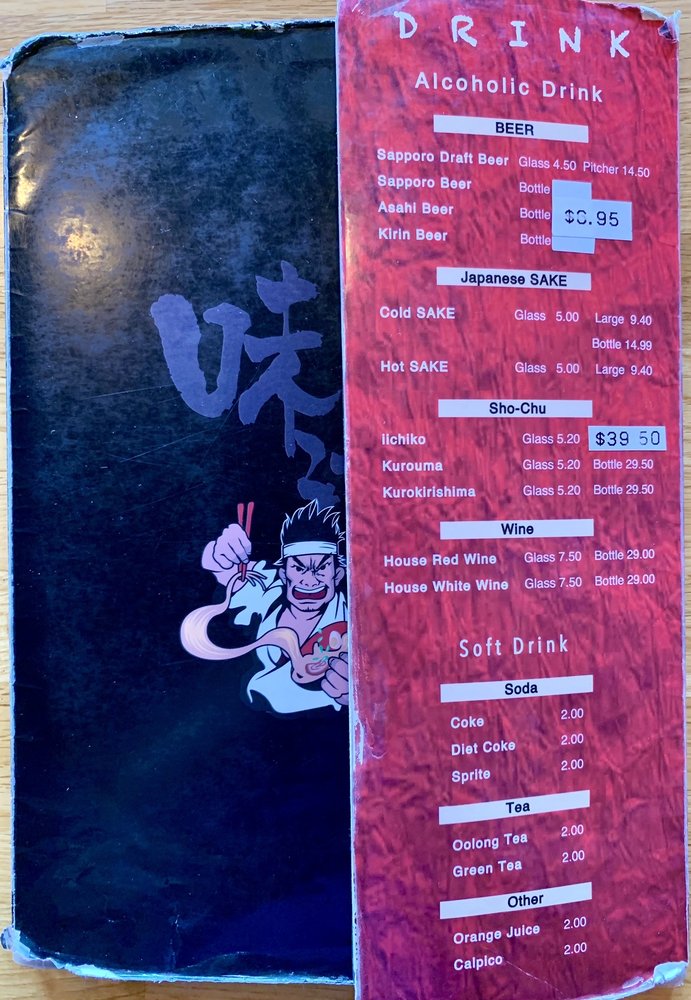 味
DRINK
Alcoholic Drink
BEER
Sapporo Draft Beer Glass 4.50 Pitcher 14.50
Sapporo Beer Bottle
Asahi Beer Bottle
Kirin Beer Bottle
Japanese SAKE
Cold SAKE Glass 5.00 Large 9.40
Bottle 14.99
Hot SAKE Glass 5.00 Large 9.40
Sho-Chu
iichiko Glass 5.20 $39 50
Kurouma Glass 5.20 Bottle 29.50
Kurokirishima Glass 5.20 Bottle 29.50
Wine
House Red Wine Glass 7.50 Bottle 29.00
House White Wine Glass 7.50 Bottle 29.00
Soft Drink
Soda
Coke 2.00
Diet Coke 2.00
Sprite 2.00
Tea
Oolong Tea 2.00
Green Tea 2.00
Other
Orange Juice 2.00
Calpico 2.00